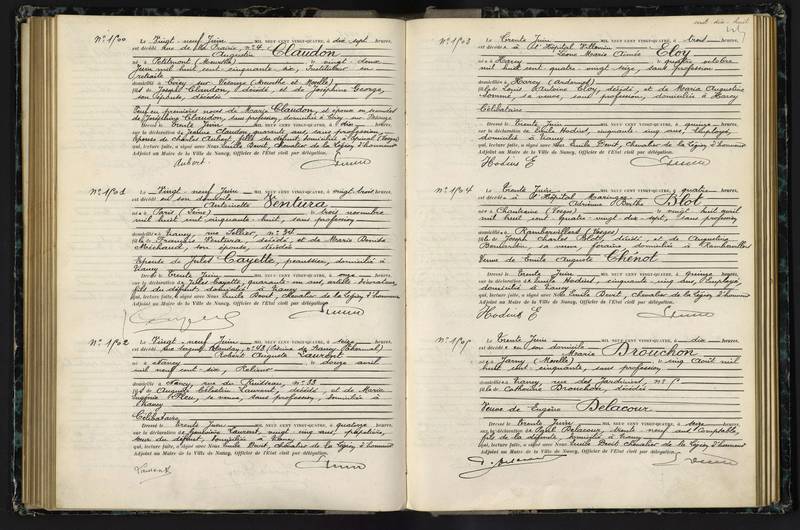 N° 1500 Le Vingt neuf Juin MIL NEUF CENT VINGT-QUATRE, à dix sept heures,
est décédé rue de la Prairie, n° 4 Claudon
Augustin
né à Petitmont (Meurthe) le vingt deux
Juin mil huit cent cinquante six, Instituteur en
Retraite
domicilié à Cirey sur Vezouze (Meurthe et Moselle)
fils de Joseph Claudon, décédé, et de Joséphine George,
son épouse, décédée
Veuf en premières noces de Marie Claudon, et époux en secondes
de Joséphine Claudon, sans profession, domiciliée à Cirey sur Vezouze
Dressé le Trente Juin MIL NEUF CENT VINGT-QUATRE, à dix heures,
sur la déclaration de Jeanne Claudon, quarante ans, sans profession,
épouse de Charles Aubert, fille du défunt, domiciliée à Epinal (Vosges)
qui, lecture faite, a signé avec Nous Emile Devit, Chevalier de la Légion d'honneur
Adjoint au Maire de la Ville de Nancy, Officier de l'Etat civil par délégation.
Aubert
N° 1501 Le Vingt neuf Juin MIL NEUF CENT VINGT-QUATRE, à vingt trois heures,
est décédée en son domicile Ventura
Antoinette
née à Paris (Seine) le trois novembre
mil huit cent cinquante huit, sans profession
domiciliée à Nancy, rue Sellier, n° 34
fille de François Ventura, décédé, et de Marie
Michaud, son épouse, décédée
Epouse de Jules Cayette, domicilié à
Nancy
Dressé le Trente Juin MIL NEUF CENT VINGT-QUATRE, à onze heures,
sur la déclaration de Jules Cayette, quarante un ans, artiste décorateur,
fils de la défunte, domicilié à Nancy
qui, lecture faite, a signé avec Nous Emile Devit, Chevalier de la Légion d'honneur
Adjoint au Maire de la Ville de Nancy, Officier de l'Etat civil par délégation.
N° 1502 Le Vingt neuf Juin MIL NEUF CENT VINGT-QUATRE, à seize heures,
est décédé
Robert Auguste Laurent
né à Nancy le douze avril
mil neuf cent six
domicilié à Nancy, rue du Ruisseau, n° 33
fils de Auguste Célestin Laurent, décédé, et de Marie
Eugénie, sa veuve, sans profession, domiciliée à
Nancy
Célibataire
Dressé le Trente Juin MIL NEUF CENT VINGT-QUATRE, à quatorze heures,
sur la déclaration de Laurent, vingt cinq ans,
soeur du défunt, domiciliée à Nancy
qui, lecture faite, a signé avec Nous Emile Devit, Chevalier de la Légion d'honneur
Adjoint au Maire de la Ville de Nancy, Officier de l'Etat civil par délégation.
Laurent
cent dix-huit
N° 1503 Le Trente Juin MIL NEUF CENT VINGT-QUATRE, à trois heures,
est décédée à l'Hôpital Villemin Eloy
Léone Marie Aimée
née à Harcy le quatre octobre
mil huit cent quatre vingt seize, sans profession
domiciliée à Harcy (Ardennes)
fille de Louis Antoine Eloy, décédé, et de Maria Augustine
Somme, sa veuve, sans profession, domiciliée à Harcy
Célibataire
Dressé le Trente Juin MIL NEUF CENT VINGT-QUATRE, à quinze heures,
sur la déclaration de Emile Hodius, cinquante cinq ans, Employé,
domicilié à Nancy
qui, lecture faite, a signé avec Nous Emile Devit, Chevalier de la Légion d'honneur
Adjoint au Maire de la Ville de Nancy, Officier de l'Etat civil par délégation.
Hodius E
N° 1504 Le Trente Juin MIL NEUF CENT VINGT-QUATRE, à quatre heures,
est décédée à l'Hôpital Maringer Blot
Adrienne Berthe
née à Chantraine (Vosges) le vingt huit avril
mil huit cent quatre vingt dix sept, sans profession
domiciliée à Rambervillers (Vosges)
fille de Joseph Charles Blot, décédé, et de Augustine
Boulardin, sa veuve, foraine, domiciliée à Rambervillers
Veuve de Emile Auguste Chenot
Dressé le Trente Juin MIL NEUF CENT VINGT-QUATRE, à quinze heures,
sur la déclaration de Emile Hodius, cinquante cinq ans, Employé,
domicilié à Nancy
qui, lecture faite, a signé avec Nous Emile Devit, Chevalier de la Légion d'honneur
Adjoint au Maire de la Ville de Nancy, Officier de l'Etat civil par délégation.
Hodius E
N° 1505 Le Trente Juin MIL NEUF CENT VINGT-QUATRE, à dix heures,
est décédée en son domicile Brouchon
Marie
née à Jarny (Moselle) le cinq Août mil
huit cent cinquante, sans profession
domiciliée à Nancy, rue des Jardiniers, n°
fille de Catherine Brouchon, décédée
Veuve de Eugène Delacour
Dressé le Trente Juin MIL NEUF CENT VINGT-QUATRE, à seize heures,
sur la déclaration de Delacour, trente neuf ans, Comptable,
fils de la défunte, domicilié à Nancy
qui, lecture faite, a signé avec Nous Emile Devit, Chevalier de la Légion d'honneur
Adjoint au Maire de la Ville de Nancy, Officier de l'Etat civil par délégation.